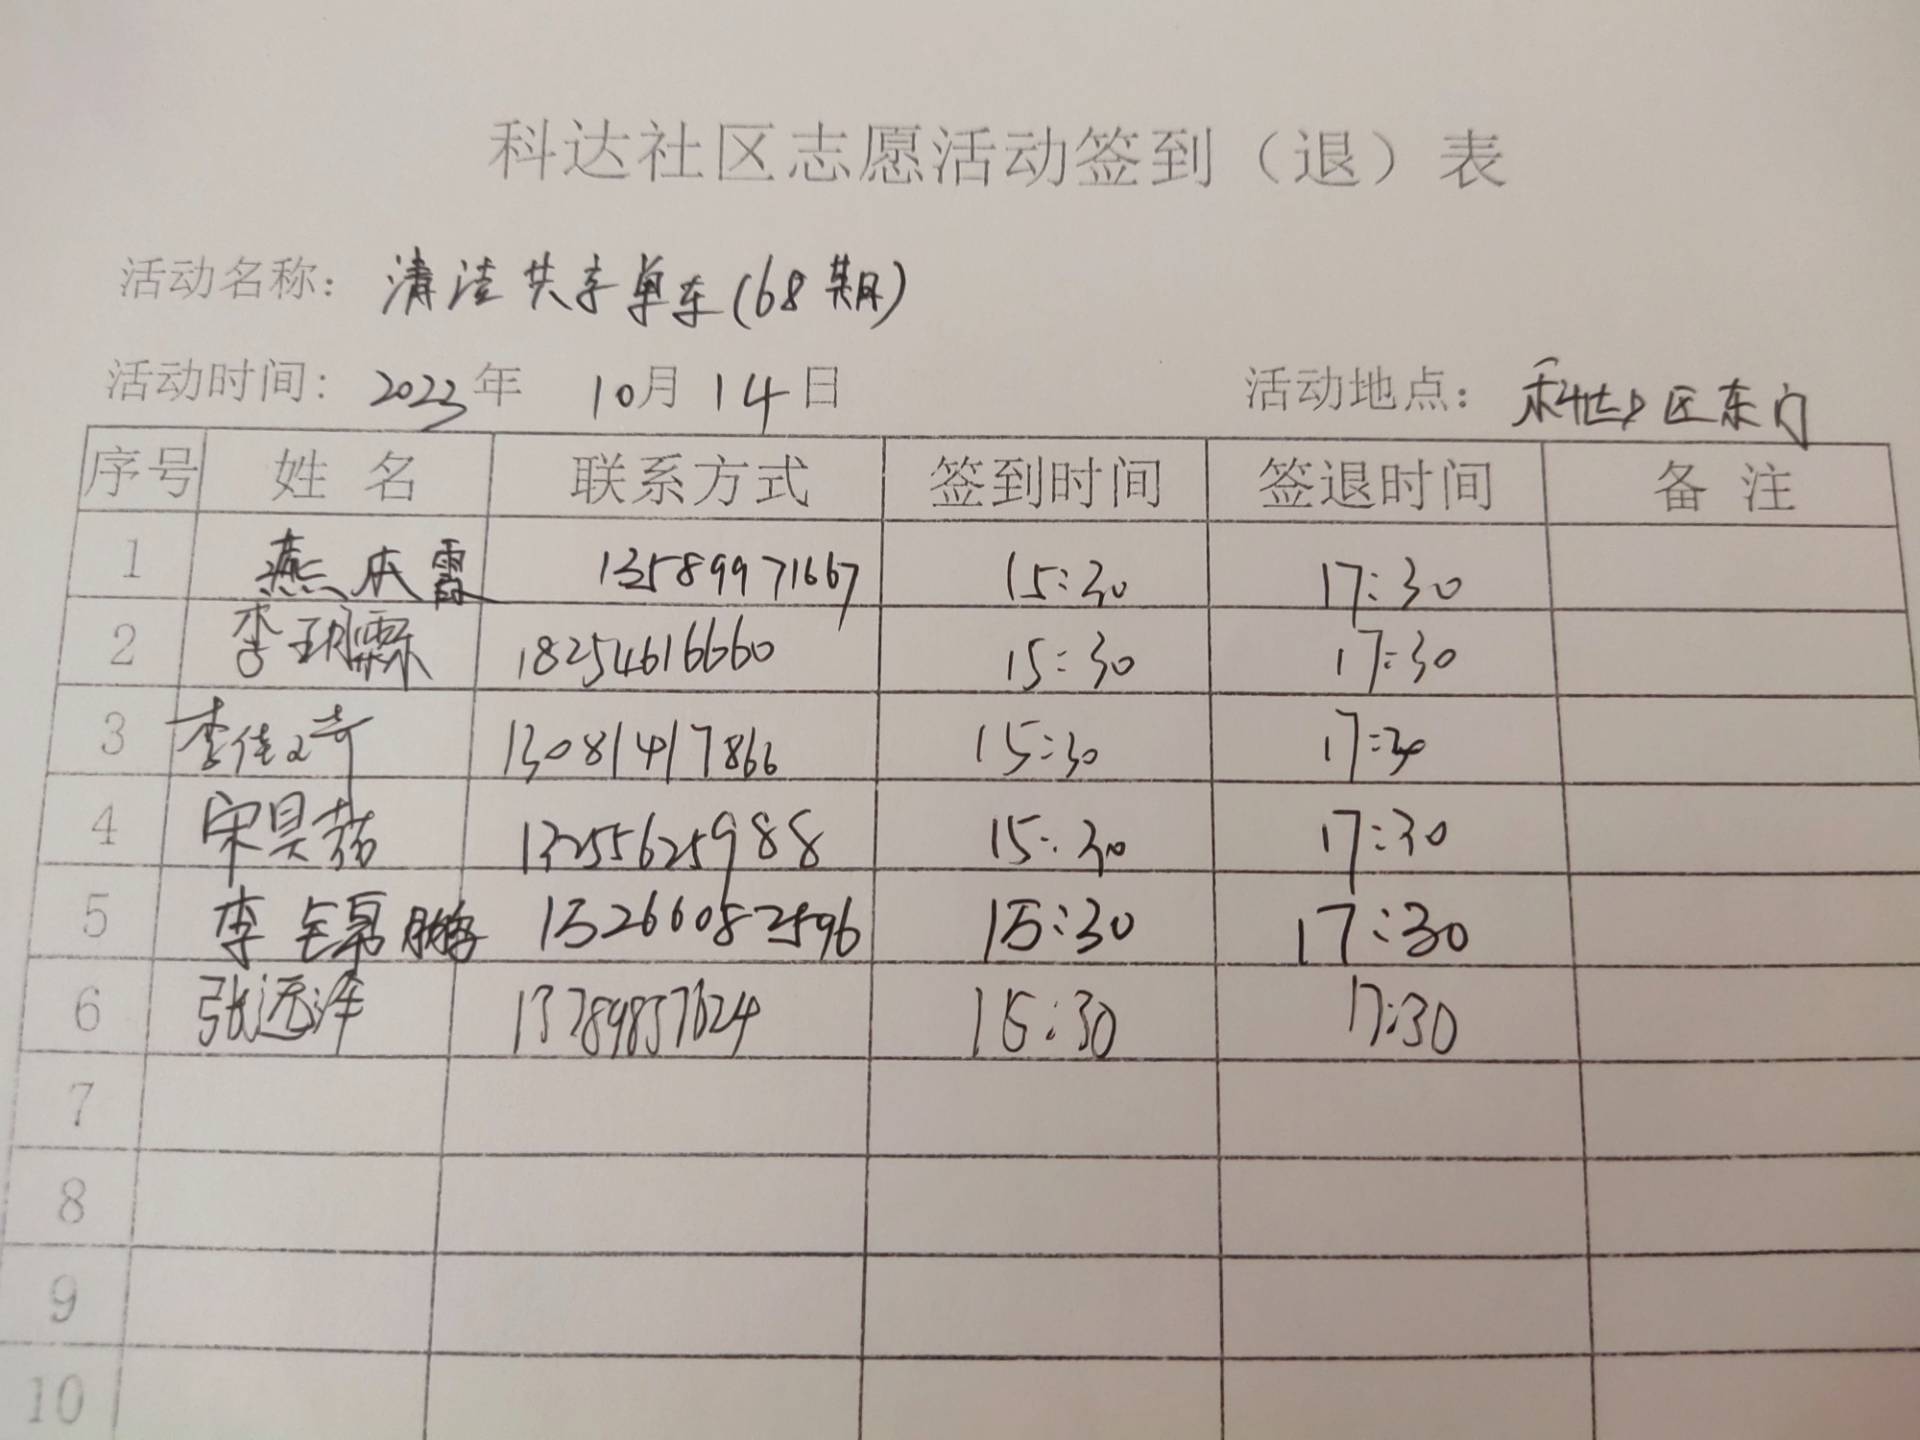 科达社区志愿活动签到（退）表
活动名称： 清洁共享单车(68期)
活动时间: 2023年 10月 14日 活动地点： 区东门
序号 姓名 联系方式 签到时间 签退时间 备注
1 燕本霞 13589971667 15:30 17:30
2 李 18254616660 15:30 17:30
3 李佳奇 13081417866 15:30 17:30
4 宋昊喆 13255625988 15:30 17:30
5 李 鹏 15266082596 15:30 17:30
6 张远泽 13789837624 15:30 17:30
7
8
9
10